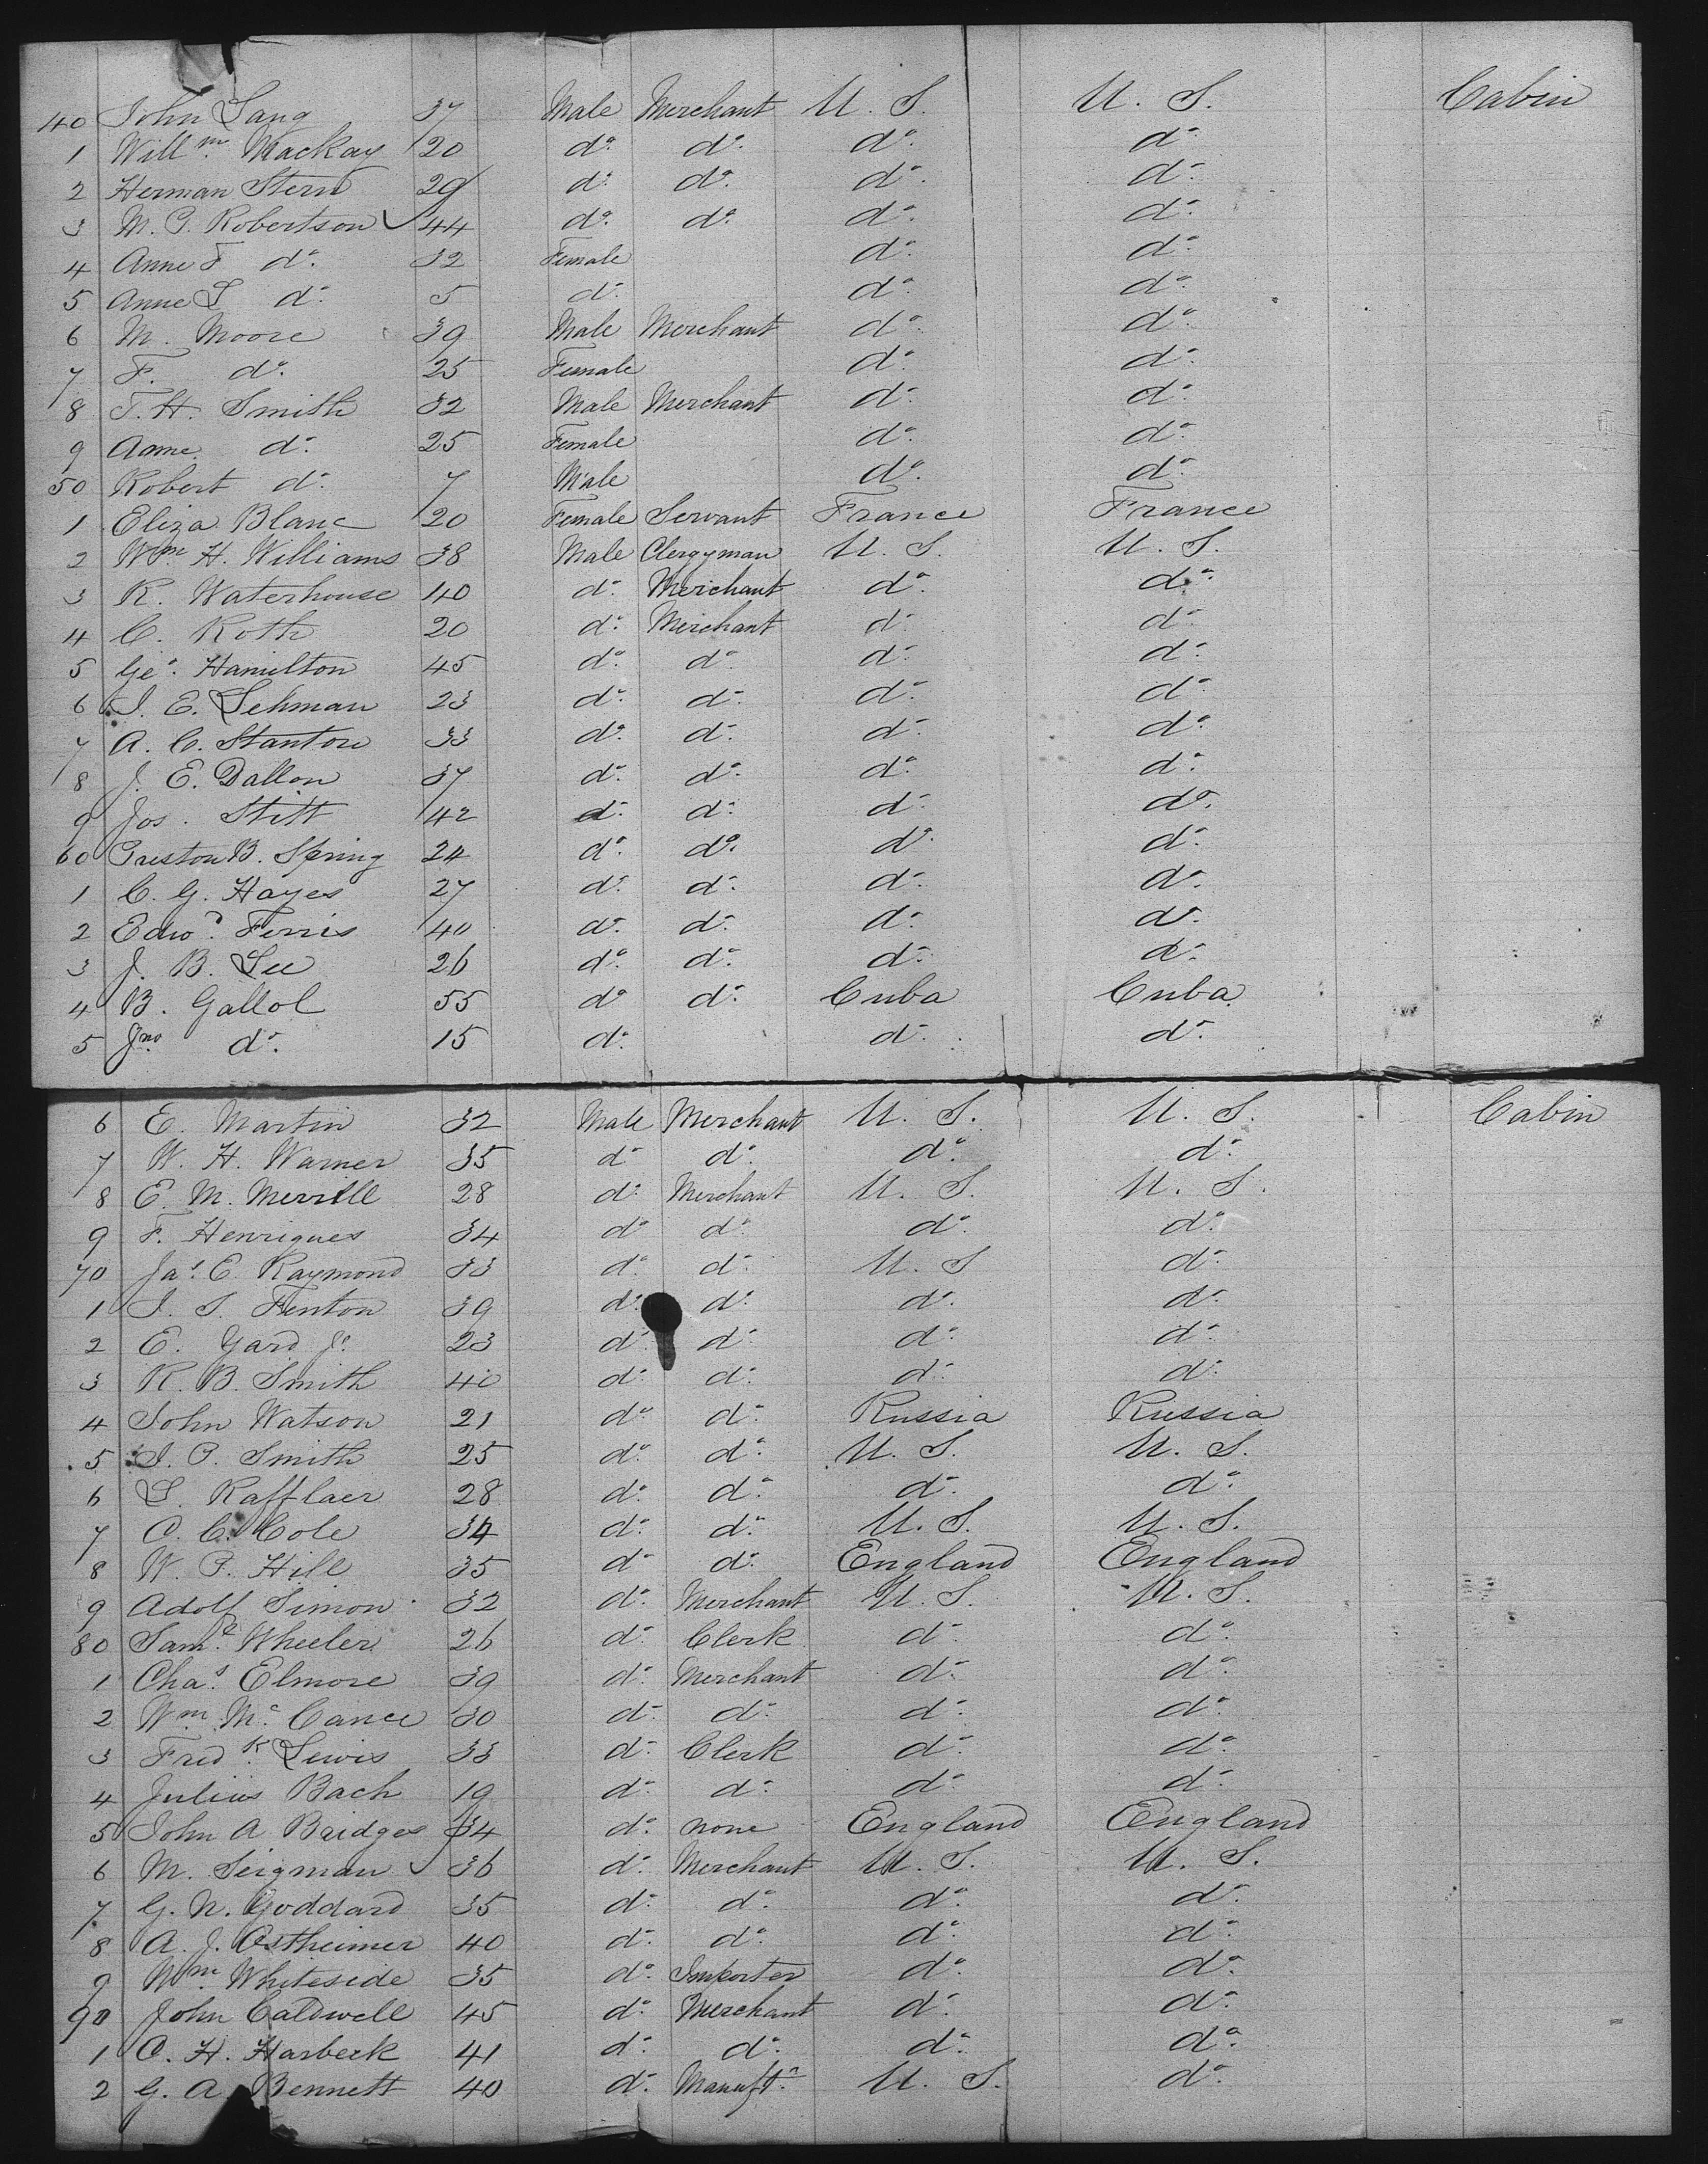 40 John Lang 37 Male Merchant U. S. U. S. Cabin
1 Willm. Mackay 20 do. do. do. do.
2 Herman Stern 29 do. do. do. do.
3 M. P. Robertson 44 do. do. do. do.
4 Anne F do. 32 Female do. do.
5 Anne L do. 5 do. do. do.
6 M. Moore 39 Male Merchant do. do.
7 F. do. 25 Female do. do.
8 T. H. Smith 32 Male Merchant do. do.
9 Anne do. 25 Female do. do.
50 Robert do. 7 Male do. do.
1 Eliza Blanc 20 Female Servant France France
2 Wm. H. Williams 38 Male Clergyman U. S. U. S.
3 R. Waterhouse 40 do. Merchant do. do.
4 C. Roth 20 do. Merchant do. do.
5 Geo. Hamilton 45 do. do. do. do.
6 I. E. Lehman 23 do. do. do. do.
7 A. C. Stanton 33 do. do. do. do.
8 J. E. Dallon 37 do. do. do. do.
9 Jos. Stitt 42 do. do. do. do.
60 Preston B. Spring 24 do. do. do. do.
1 C. G. Hayes 27 do. do. do. do.
2 Edwd. Ferris 40 do. do. do. do.
3 J. B. Lee 26 do. do. do. do.
4 B. Gallol 55 do. do. Cuba Cuba
5 Jno. do. 15 do. do. do.
6 E. Martin 32 Male Merchant U. S. U. S. Cabin
7 W. H. Warner 35 do. do. do. do.
8 E. M. Merrill 28 do. Merchant U. S. U. S.
9 F. Henriques 34 do. do. do. do.
70 Jas. E. Raymond 33 do. do. U. S do.
1 I. S. Fenton 39 do. do. do. do.
2 E. Yard Jr. 23 do. do. do. do.
3 R. B. Smith 40 do. do. do. do.
4 John Watson 21 do. do. Russia Russia
5 I. P. Smith 25 do. do. U. S. U. S.
6 L. Rafflaer 28 do. do. do. do.
7 O. C. Cole 34 do. do. U. S. U. S.
8 W. P. Hill 35 do. do. England England
9 Adolf Simon 32 do. Merchant U. S. U. S.
80 Saml. Wheeler 26 do. Clerk do. do.
1 Chas. Elmore 39 do. Merchant do. do.
2 Wm. Mc. Cance 30 do. do. do. do.
3 Fredk. Lewis 33 do. Clerk do. do.
4 Julius Bach 19 do. do. do. do.
5 John A Bridges 34 do. none England England
6 M. Seigman 36 do. Merchant U. S. U. S.
7 G. N. Goddard 35 do. do. do. do.
8 A. J. Ostheimer 40 do. do. do. do.
9 Wm. Whiteside 35 do. Importer do. do.
90 John Caldwell 45 do. Merchant do. do.
1 O. H. Harbeck 41 do. do. do. do.
2 G. A. Bennett 40 do. Manuftr. U. S. do.